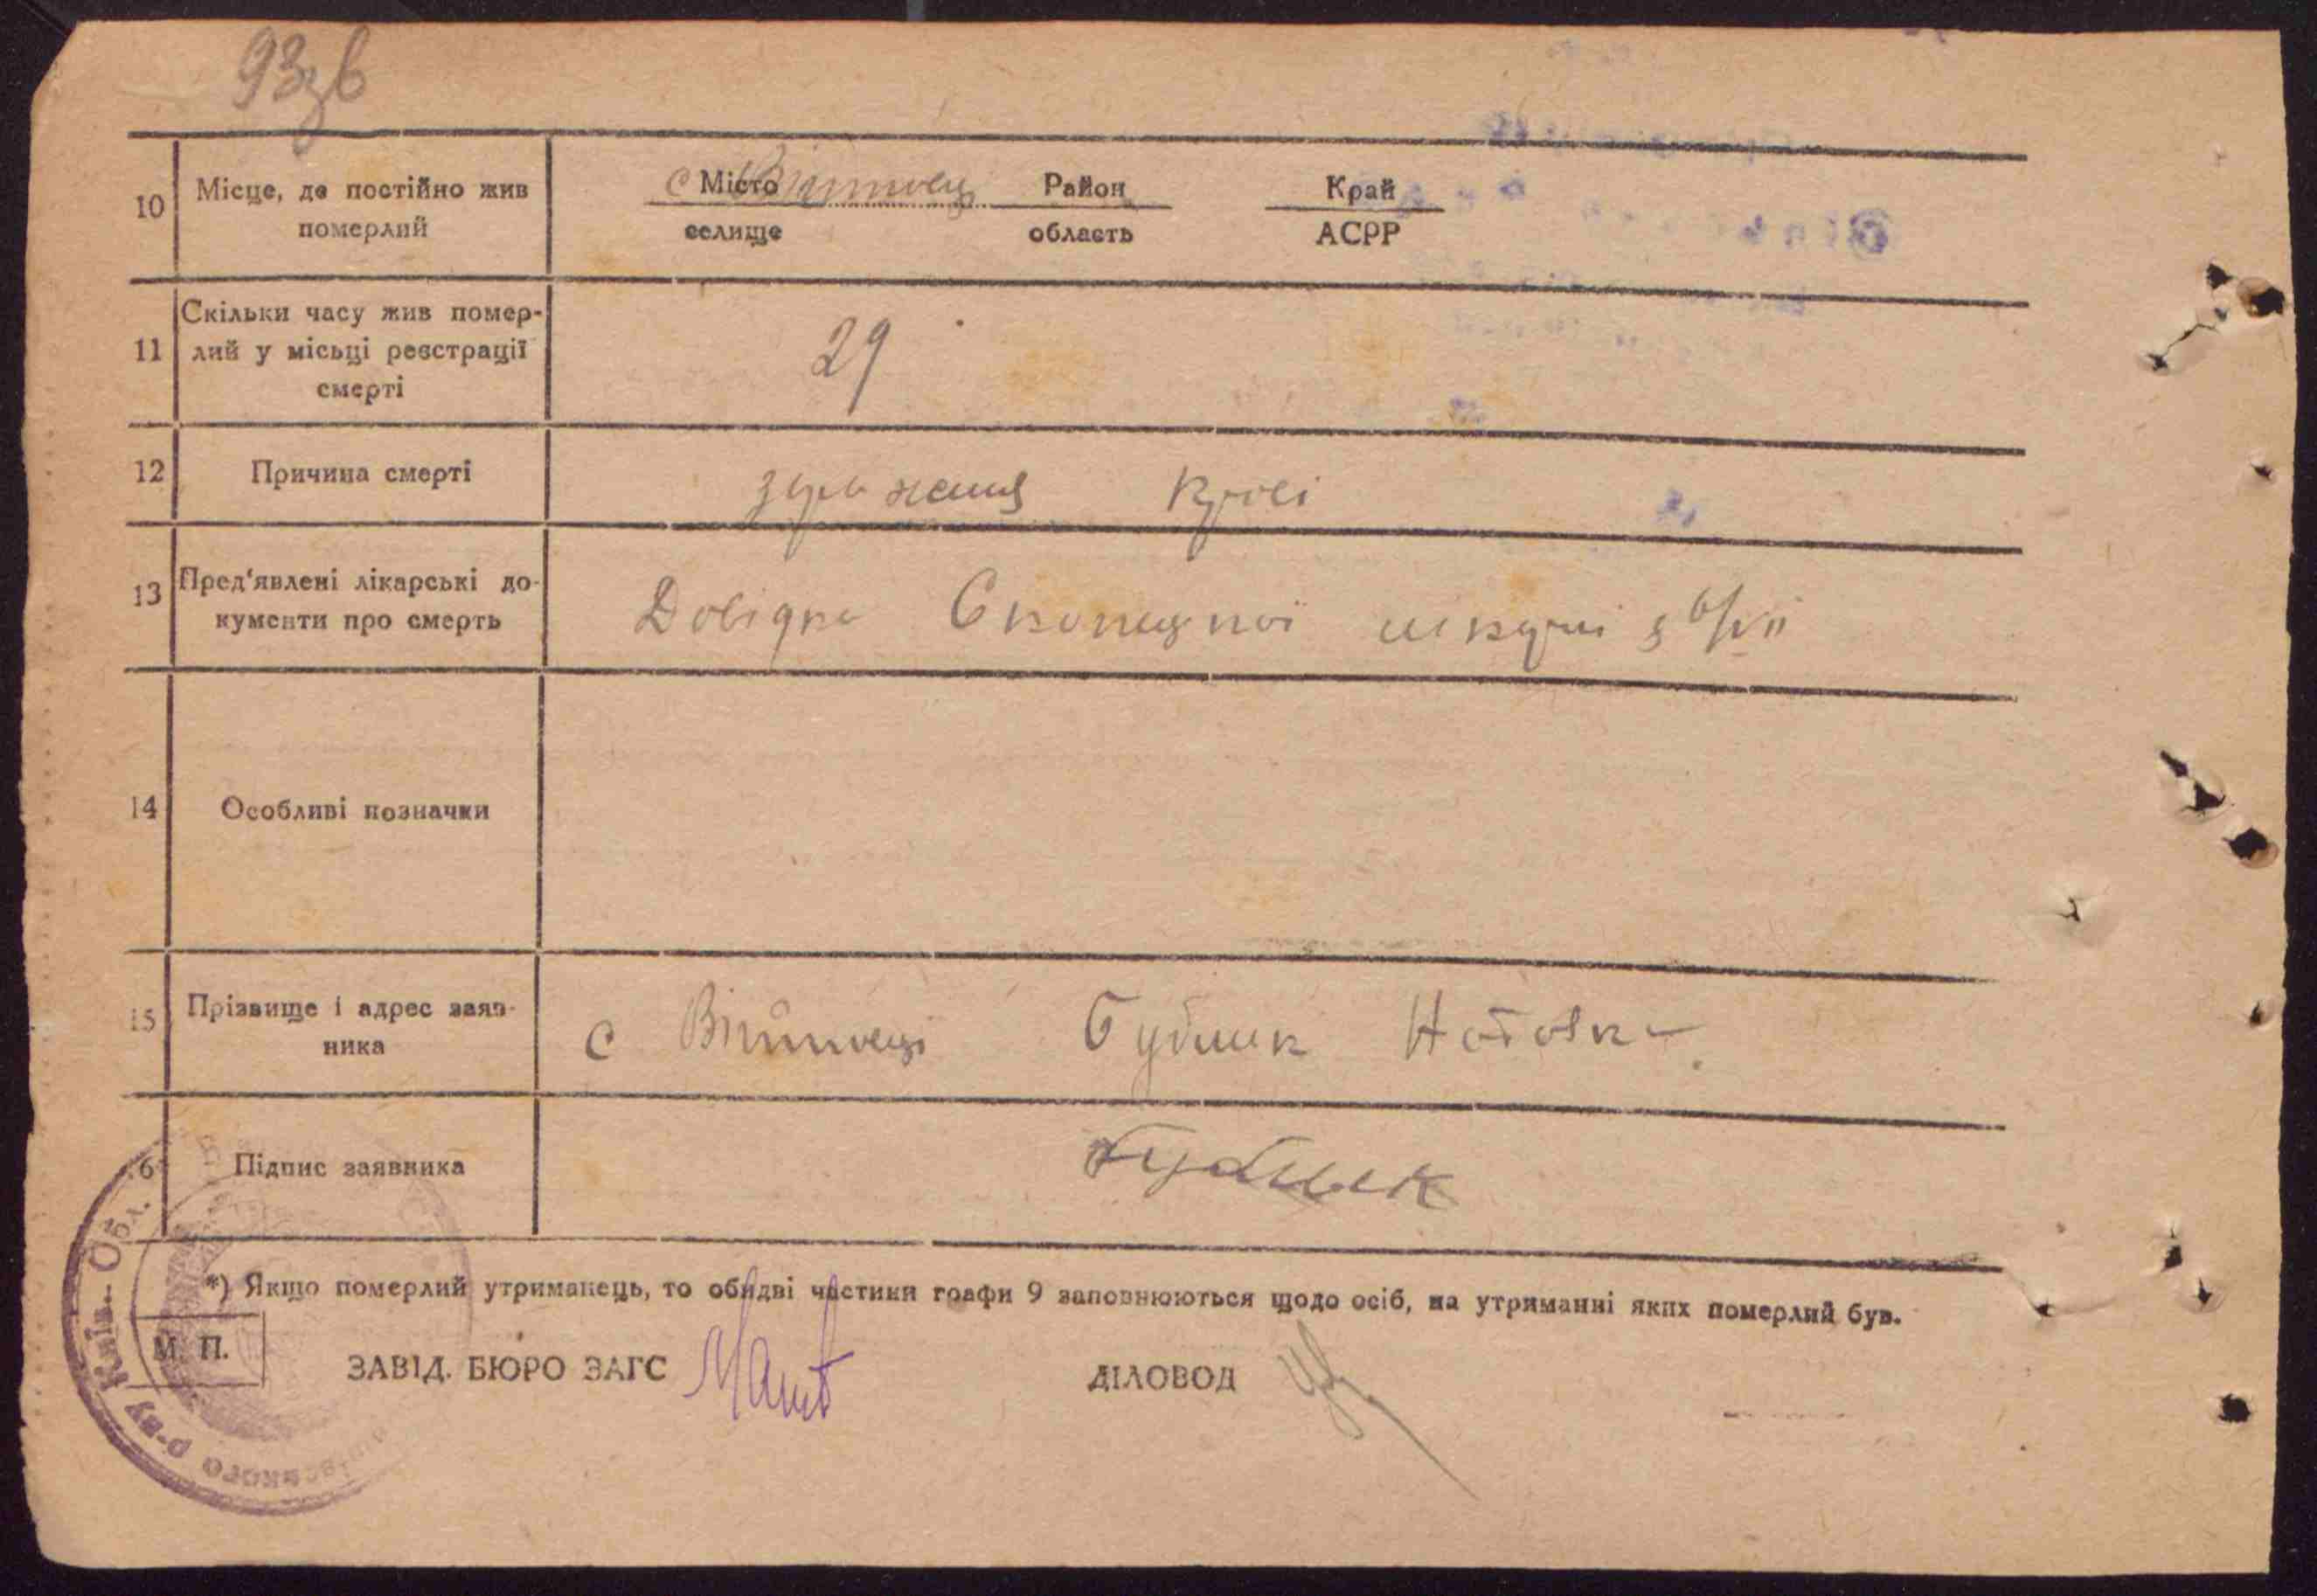 93зв
10 Місце, де постійно жив
померлий
с Місто Район Край
селище область АСРР
11 Скільки часу жив помер-
лий у місьці реєстрації
смерті
29
12 Причина смерті зараження крові
13 Пред'явлені лікарські до-
кументи про смерть
Довідка з 6/VII
14 Особливі позначки
15 Прізвище і адрес заяв-
ника
с Бублик
16 Підпис заявника Бублик
*) Якщо померлий утриманець, то обидві частини графи 9 заповнюються щодо осіб, на утриманні яких померлий був.
М. П.
ЗАВІД. БЮРО ЗАГС ДІЛОВОД
р-ву Київ.. Обл.